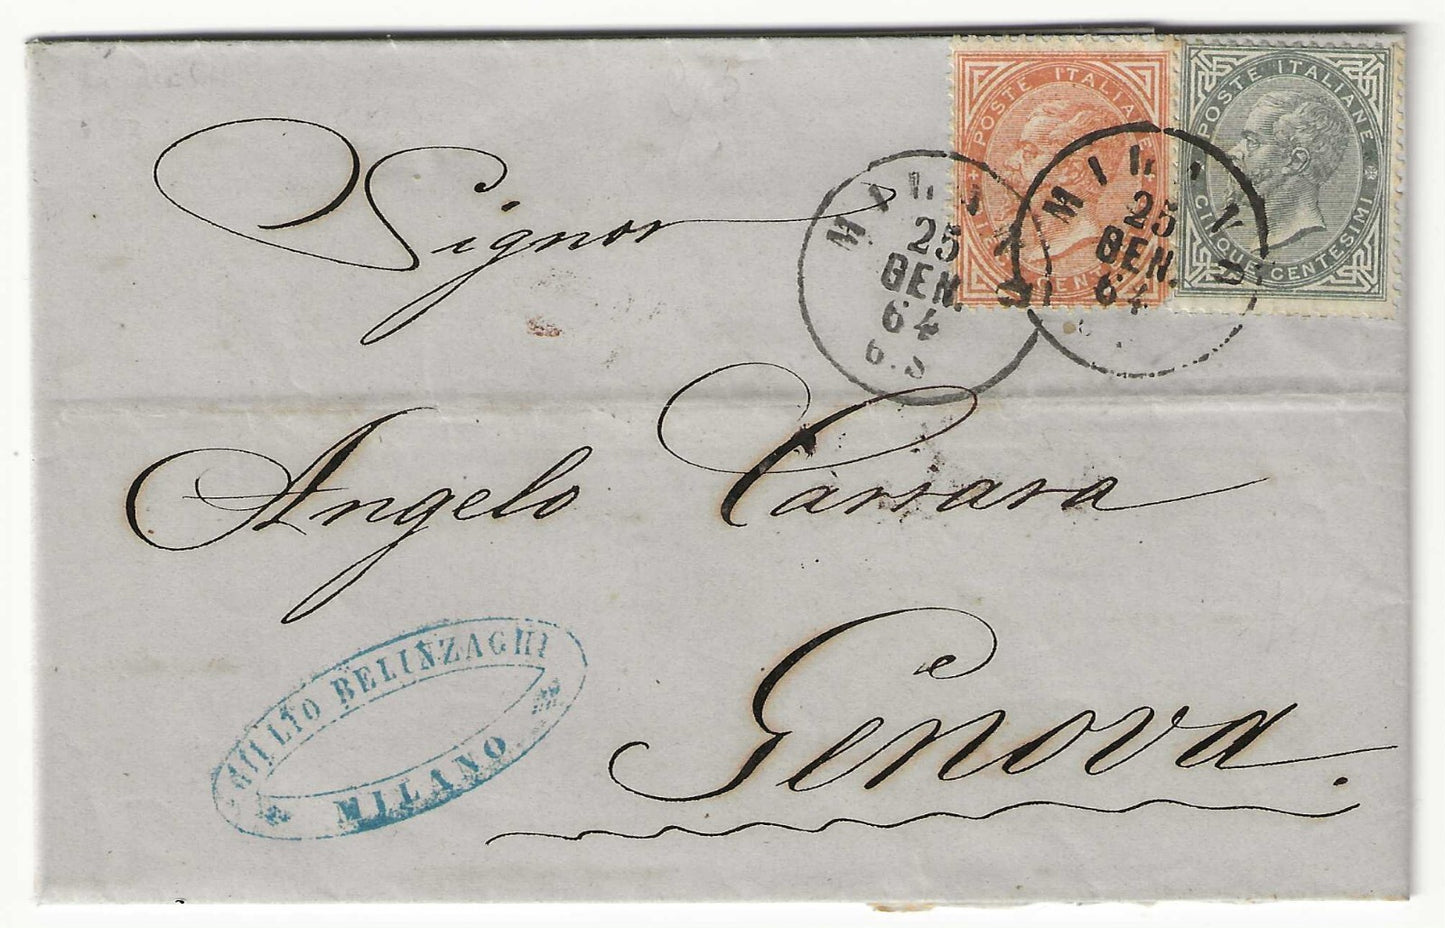 POSTE ITALIANE
DIECI CENTESIMI
POSTE ITALIANE
CINQUE CENTESIMI
MILANO
25
GEN.
64
6.S
MILANO
25
GEN.
64
Signor
Angelo Carrara
Genova.
GIULIO BELINZAGHI
MILANO